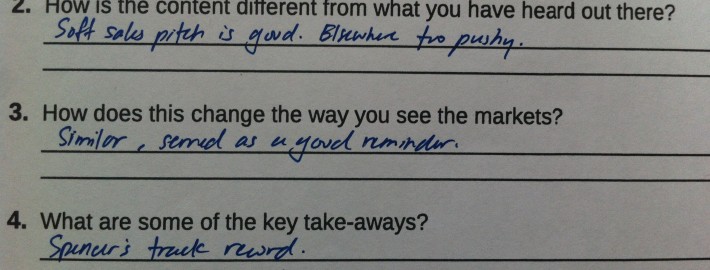 2. How is the content different from what you have heard out there?
Soft sales pitch is good. Elsewhere too pushy.
3. How does this change the way you see the markets?
Similar, served as a good reminder.
4. What are some of the key take-aways?
Spencer's track record.